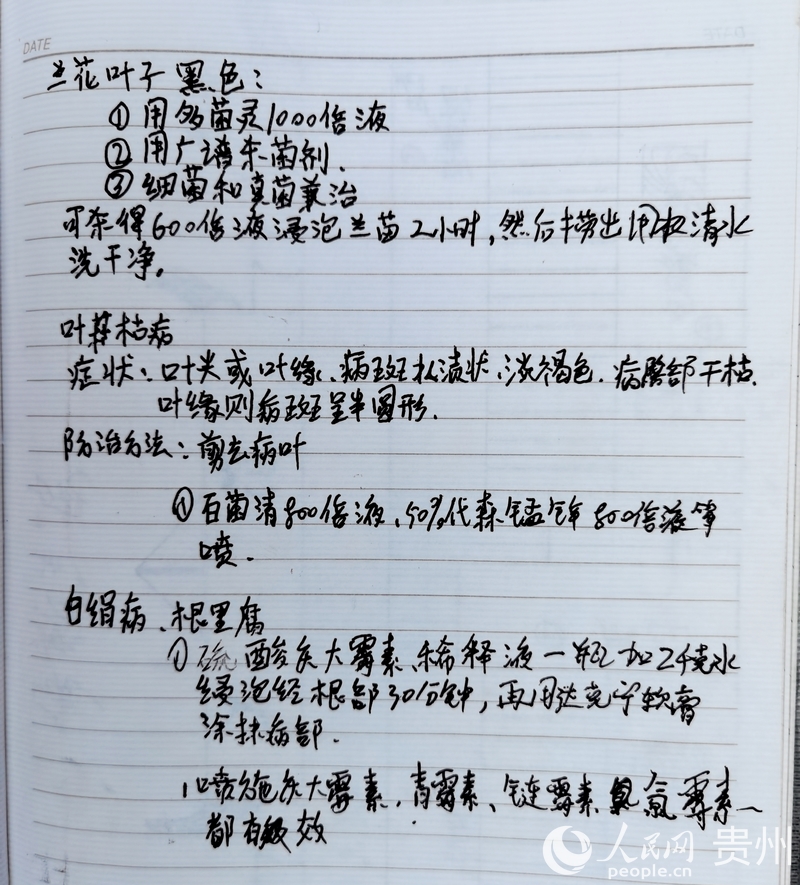 DATE
兰花叶子黑色:
① 用多菌灵1000倍液
② 用广谱杀菌剂.
③ 细菌和真菌兼治
可杀得600倍液浸泡兰苗2小时,然后捞出用 清水
洗干净。
叶基枯病
症状:叶尖或叶缘、病斑 渍状、淡褐色.病 部干枯.
叶缘则病斑呈半圆形.
防治方法:剪去病叶
① 百菌清800倍液、50%代森锰锌800倍液等
喷.
白绢病、根黑腐
① 硫酸庆大霉素、稀释液一瓶加2千克水
浸泡 根部30分钟,再用达克宁软膏
涂抹病部.
喷施庆大霉素,青霉素、链霉素 氯霉素
都有 效
人民网 贵州
people.cn